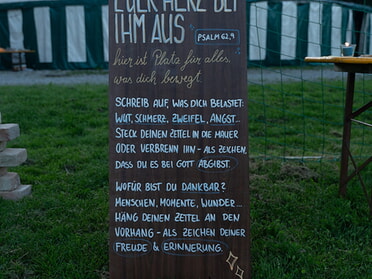 EUER HERZ BEI
IHM AUS
PSALM 62,9
hier ist Platz für alles,
was dich bewegt
SCHREIB AUF, WAS DICH BELASTET:
WUT, SCHMERZ, ZWEIFEL, ANGST...
STECK DEINEN ZETTEL IN DIE MAUER
ODER VERBRENN IHN - ALS ZEICHEN,
DASS DU ES BEI GOTT ABGIBST.
WOFÜR BIST DU DANKBAR?
MENSCHEN, MOMENTE, WUNDER...
HÄNG DEINEN ZETTEL AN DEN
VORHANG - ALS ZEICHEN DEINER
FREUDE & ERINNERUNG.